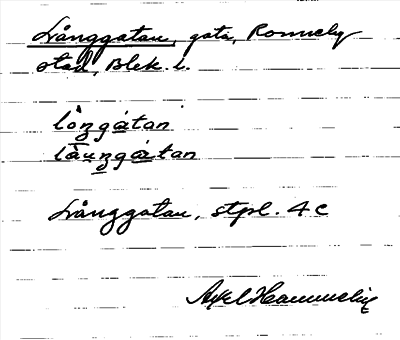 Långgatan, gata, Ronneby
stad, Blek. l.
lòŋgátan
làuŋgátan
Långgatan, stpl. 4C
Axel Hammelin